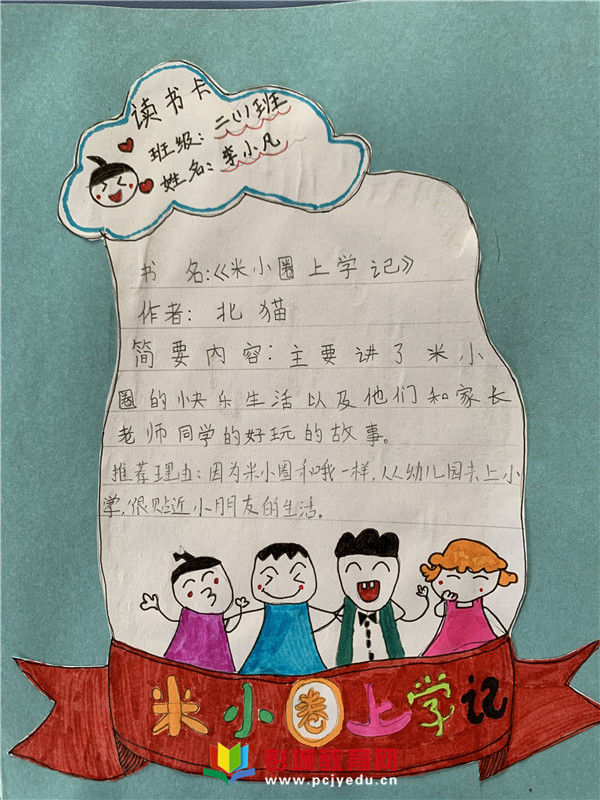 读书卡
班级：二(1)班
姓名：李小凡
书名:《米小圈上学记》
作者：北猫
简要内容：主要讲了米小
圈的快乐生活以及他们和家长
老师同学的好玩的故事。
推荐理由：因为米小圈和哦一样，从幼儿园去上小
学，很贴近小朋友的生活。
米小圈上学记
彭城教育网
www.pcjyedu.cn